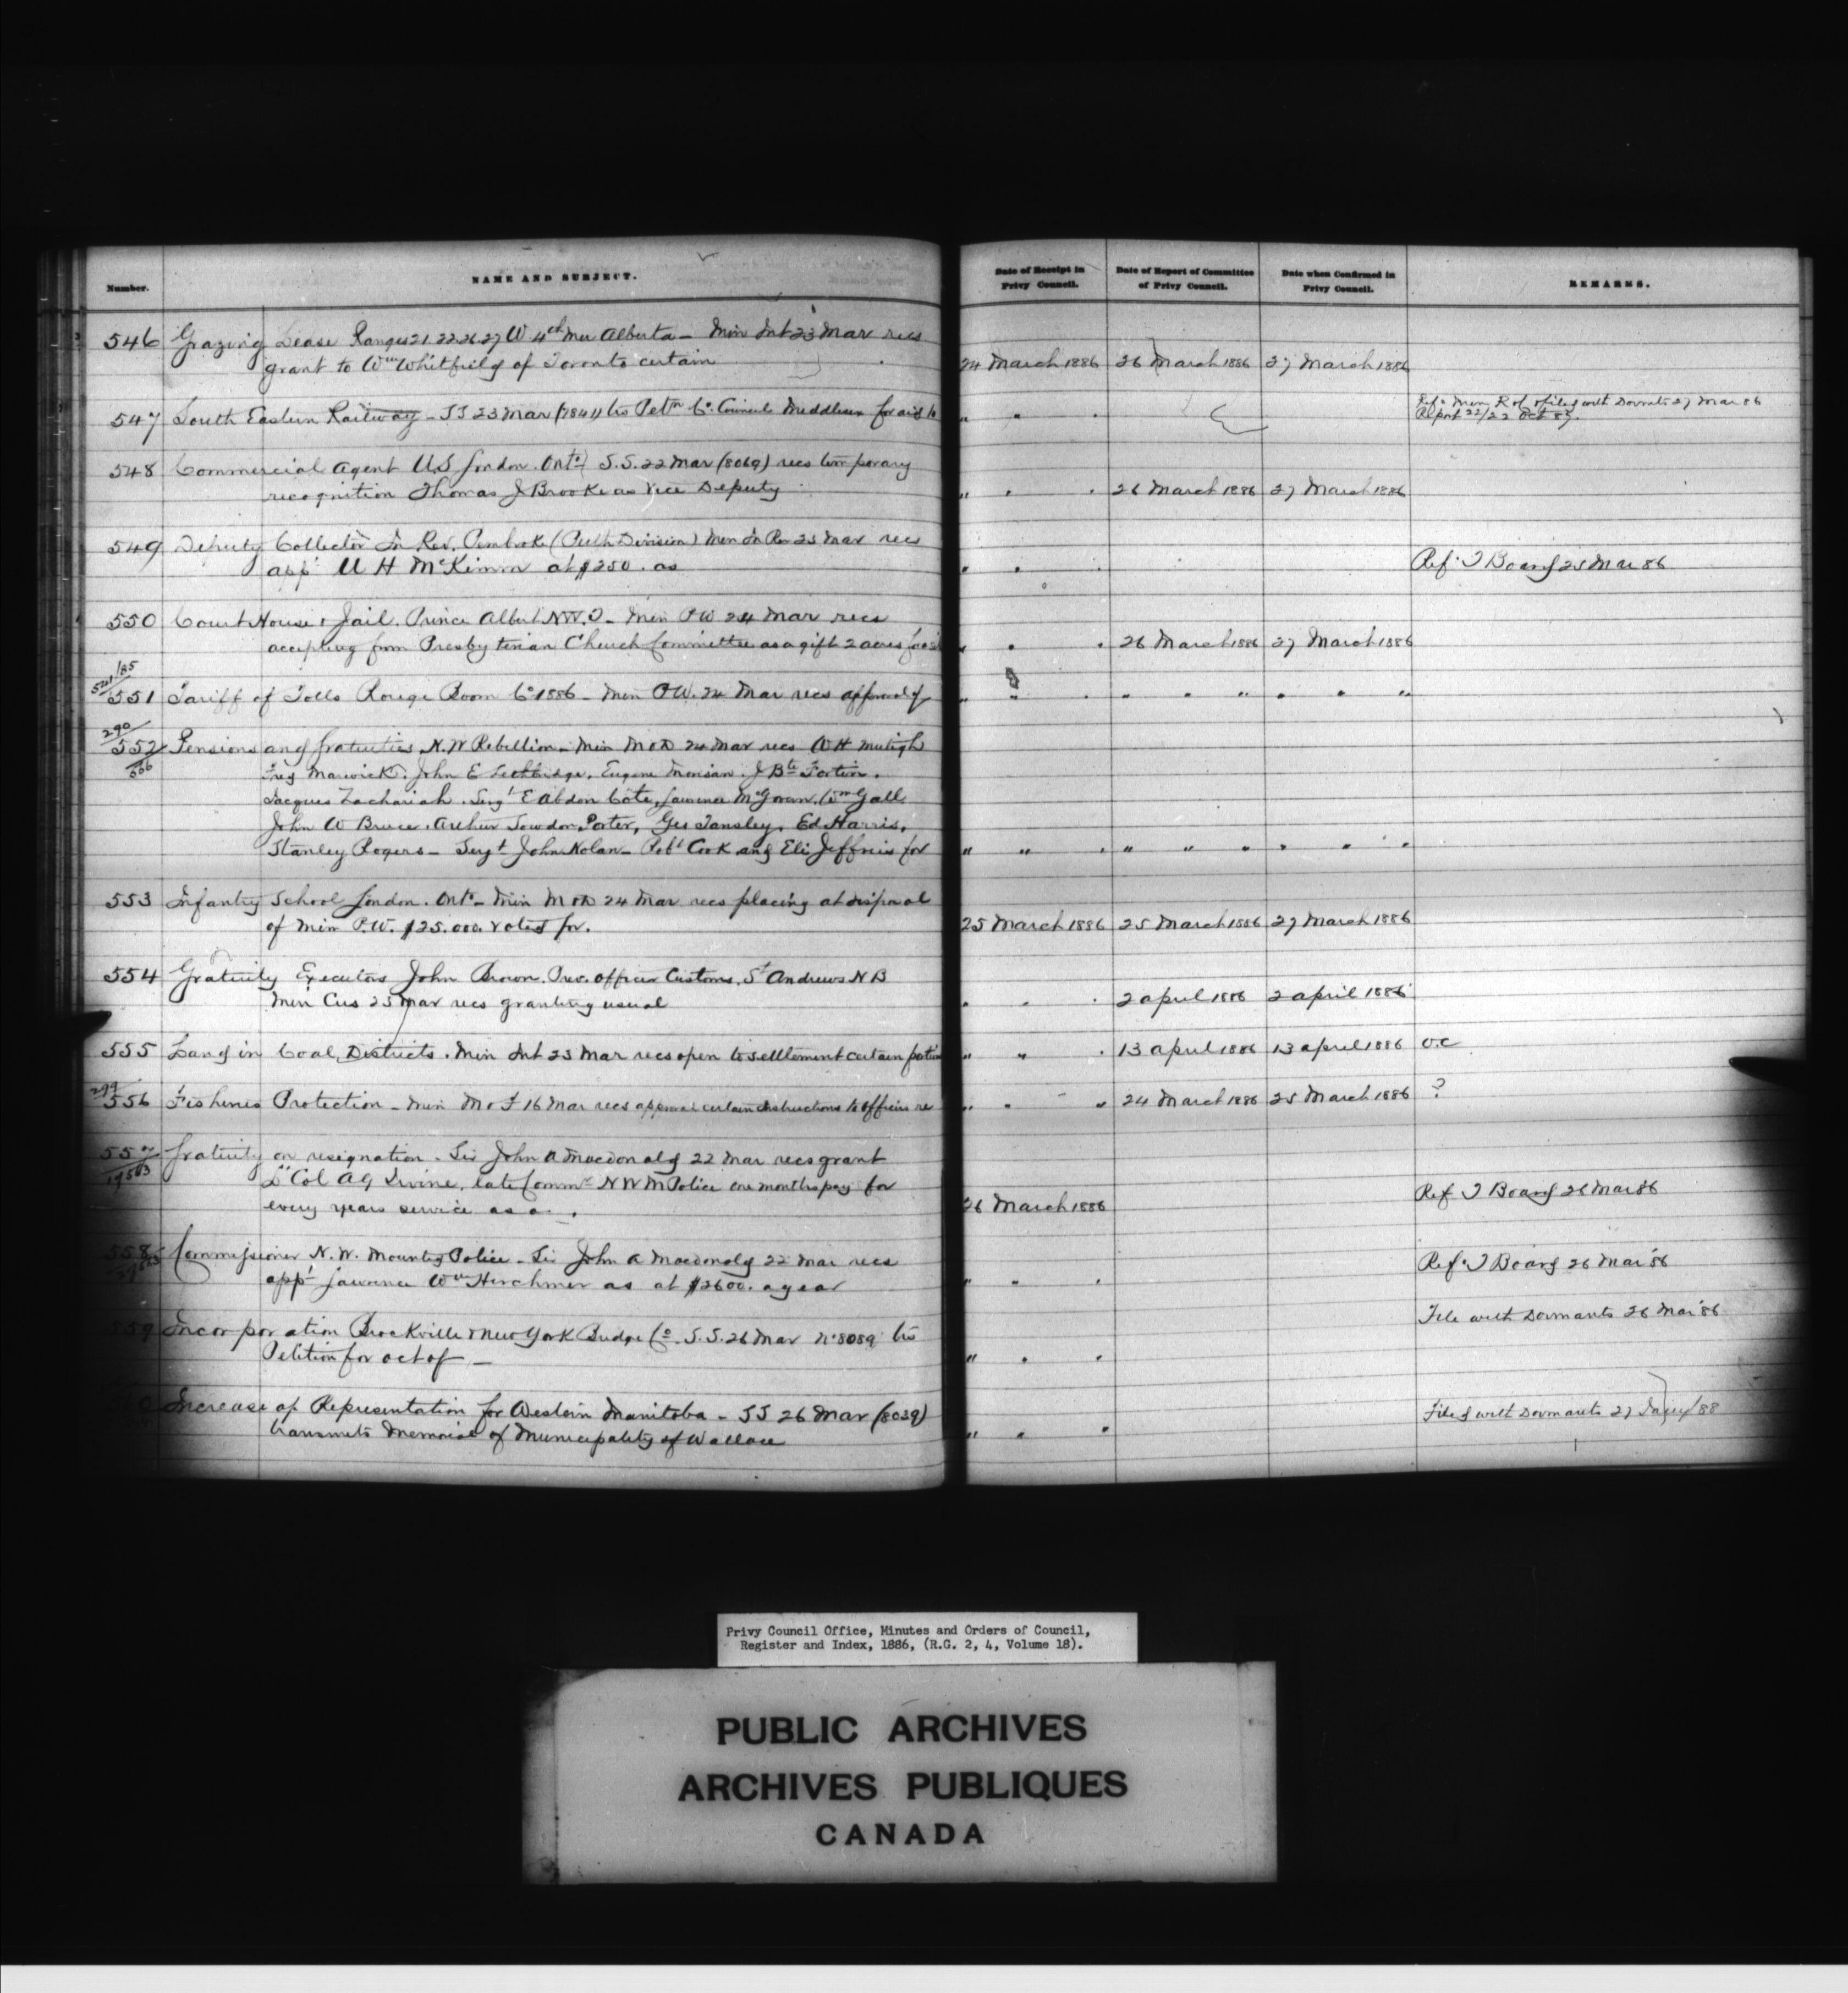 Number.
NAME AND SUBJECT.
Date of Receipt in Privy Council.
Date of Report of Committee of Privy Council.
Date when Confirmed in Privy Council.
REMARKS.
546 Grazing Lease Ranges 21. 22. 26. 27 W 4th Mer Alberta - Min Int 23 Mar recs
grant to Wm Whitfield of Toronto certain
24 March 1886 26 March 1886 27 March 1886
547 South Eastern Railway - SS 23 Mar (7841) trs Petn Co. Council Middlesex for aid to
" " "
Ref: Min R of filed with Dormts 27 Mar 86
Report 22/22 Oct 87.
548 Commercial Agent U.S London. Onto. S.S. 22 Mar (8069) recs temporary
recognition Thomas J Brooke as Vice Deputy
" " " 26 March 1886 27 March 1886
549 Deputy Collector In Rev. Pembroke (Perth Division) Min In Rev 23 Mar recs
appt U H McKimm at $250. as
" " " Ref. T Board 25 Mar 86
550 Court House & Jail. Prince Albert N.W.T - Min P W 24 Mar recs
accepting from Presbyterian Church Committee as a gift 2 acres for
" " " 26 March 1886 27 March 1886
521/85
551 Tariff of Tolls Rouge Boom Co 1886 - Min P.W. 24 Mar recs approval of
" " " " " " " " "
290
552 Pensions and Gratuities N.W Rebellion - Min M & D 24 Mar recs W H
566
Fred Marwick. John E Lethbridge, Eugene . J Bte Fortin.
Jacques Zachariah. Sergt E Abdon Côte, Lawrence McGovern. Wm Gall
John W Bruce. Arthur Sowdon Porter, Geo Tansley. Ed Harris.
Stanley Rogers - Sergt John Nolan - Robt Cook and Eli Jeffries for
" " " " " " " " "
553 Infantry School London. Onto - Min M & D 24 Mar recs placing at disposal
of Min P.W. $25.000. voted for.
25 March 1886 25 March 1886 27 March 1886
554 Gratuity Executors John Brown. Prev. Officer Customs. St Andrews N B
Min Cus 23 Mar recs granting usual
" " " 2 April 1886 2 April 1886
555 Land in Coal Districts. Min Int 23 Mar recs open to settlement certain portion
" " " 13 April 1886 13 April 1886 O.C
299
556 Fisheries Protection - Min M & F 16 Mar recs approval certain instructions to officers re
" " " 24 March 1886 25 March 1886 ?
557 Gratuity on resignation - Sir John A Macdonald 22 Mar recs grant
Lt Col A G Irvine. late Commr N W M Police one months pay for
every years service as a - .
26 March 1886
Ref T Board 26 Mar 86
558 Commissioner N. W. Mounted Police - Sir John A Macdonald 22 Mar recs
appt Lawrence Wm Herchmer as at $2600. a year
" " " Ref. T Board 26 Mar '86
559 Incorporation Brockville & New York Bridge Co. S.S. 26 Mar No 8089 trs
Petition for act of -
" " " File with Dormants 26 Mar '86
0 Increase of Representation for Western Manitoba - SS 26 Mar (8039)
transmits Memorial of Municipality of Wallace
" " " Filed with Dormants 27 Jany/88
Privy Council Office, Minutes and Orders of Council,
Register and Index, 1886, (R.G. 2, 4, Volume 18).
PUBLIC ARCHIVES
ARCHIVES PUBLIQUES
CANADA